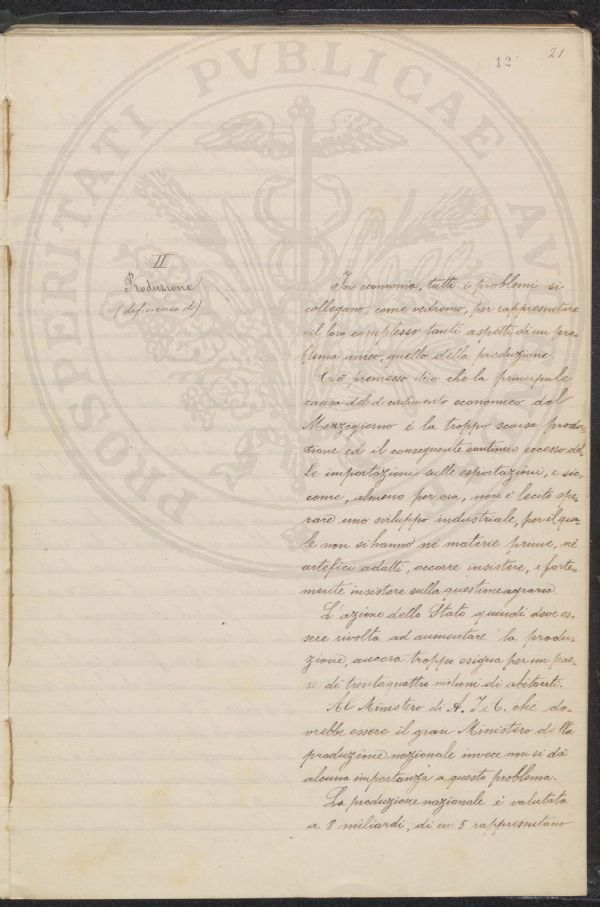 21
12
PROSPERITATI PVBLICAE AV
II
Produzione
(deficienza di)
In economia, tutti i problemi si
collegano, come vedremo, per rappresentare
nel loro complesso tanti aspetti di un pro-
blema unico, quello della produzione.
Ciò premesso dico che la principale
causa del decadimento economico del
Mezzogiorno è la troppo scarsa produ-
zione ed il conseguente continuo eccesso del-
le importazioni sulle esportazioni, e sic-
come, almeno per ora, non è lecito spe-
rare uno sviluppo industriale, per il qua-
le non si hanno nè materie prime, nè
artefici adatti, occorre insistere, e forte-
mente insistere sulla questione agraria.
L'azione dello Stato quindi deve es-
sere rivolta ad aumentare la produ-
zione, ancora troppo esigua per un pae-
se di trentaquattro milioni di abitanti.
Al Ministero di A. I. e C. che do-
vrebbe essere il gran Ministero della
produzione nazionale invece non si dà
alcuna importanza a questo problema.
La produzione nazionale è valutata
a 8 miliardi, di cui 5 rappresentano